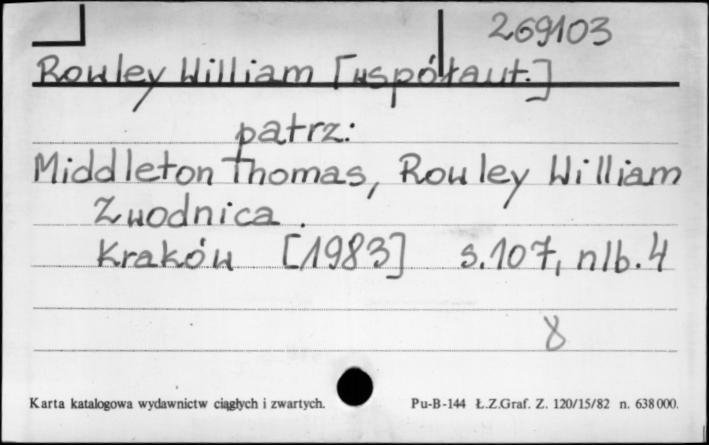 269103
Rowley William [współaut.]
patrz:
Middleton Thomas, Rowley William
Zwodnica.
Kraków [1983] s.107, nlb.4
8
Karta katalogowa wydawnictw ciągłych i zwartych. Pu-B-144 Ł.Z.Graf. Z. 120/15/82 n. 638000.